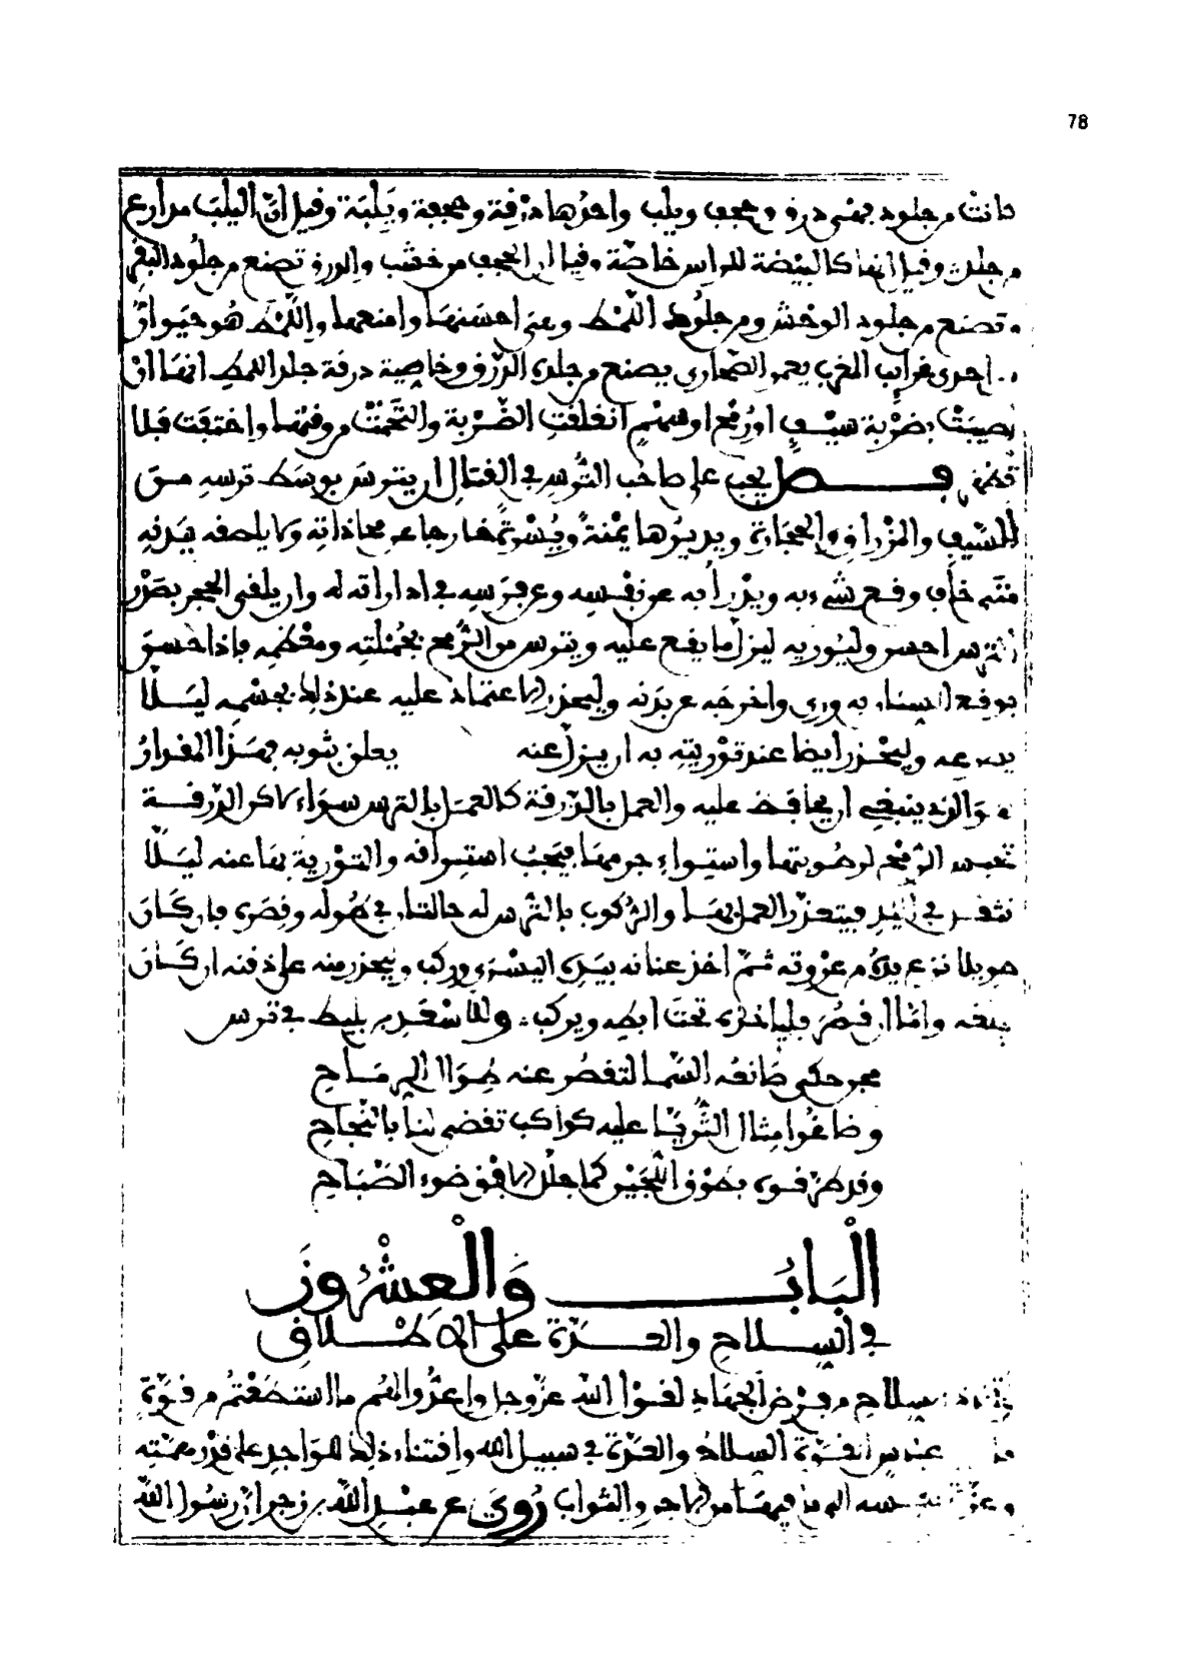 78
كانت من جلود فهي درق وحجف ويلب واحدُها درَقة وحجفة ويَلَبَة وقيل انّ اليلَب
من جلد وقيل انها كالبَيْضة للراس خاصّة وقيل ان الحجف من خشب والدرق تصنع من جلُود البقر
تصنع من جلود الوحش ومن جلُود اللّمْط وهي احسَنهَا وامنعها واللّمْط هُو حَيَوان
احدى غرايب الغرب يعم الصّحارى يصنع من جلده الدّرَق وخاصية درقة جلد اللمط انهَا اذ
بضرْبة سيْفٍ او رُمح او سَهْمٍ انغلقتِ الضّرْبة والتَحَمَتْ من وقتها واختفت فلا
فصل يجب على صاحب التُّرسِ في القتالِ ان يتترسَ بوسَط ترسِهِ من
السّيفِ والمزْراقِ والحجَارة ويديرُها يَمْنَةً ويُسْرَةً خارجا عن محاذاته ولا يلصقه ببَدَنِهِ
متى خاف وقع شيء به ويدْرأ به عن نفسِه وعن فرَسِه في اداراته له وان يلقى الحجر بصَدْر
التّرس احسن وليُوَرِّ به ليزلّ ما يقع عليه ويتترس من الرُّمح بجُمْلته ومعْظمِه فاذا احسّ
بوقع السنان به ورى واخرجَه عن بدَنه وليحذر الاعتماد عليه عند ذلك بجسْمِه ليَلّا
وليحْذر ايضا عند توْريَتِهِ به ان يزلّ عنه يعلق بثوبه فهَذا المقدارُ
الذي ينبغي ان يحافَظ عليه والعمل بالدّرَقة كالعمَل بالترس سوَاء لاكن الدّرقة
تحبس الرُّمْحَ لرطوبتها واستِواءِ جرمهَا فيَجبُ استِراقه والتوْرية بهَا عنه ليَلّا
في اليَدِ فيتعذّر العمل بهَا والرُّكوب بالتُّرس له حالتان في طُوله وقِصَره فان كَان
طويلا نزع يدَه من عرْوته ثمّ اخذ عنانه بيَدِه اليُسْرَى وركب ويحذر منه على ذقنه ان كَان
وامّا ان قصُرَ فليَاخذه تحتَ ابطِه ويركب ولابن سَعْد بن بليط في ترس
مجن حكى صَانعُه السّمَا لتقصُر عنه طِوَالُ الرِّمَاحِ
وصَاغُوا مثالَ الثُّرَيّا عليه كواكب تقضي لنَا بالنّجَاحِ
وقد طرّقوه بطَوْق اللُّجَيْن كما جلّل الافْق ضوء الصّبَاحِ
الْبَابُ وَالْعِشْرُونَ
في السِّلاحِ والعُدّة على الاطْلاقِ
السلاح من فرْض الجهَادِ لقوْل اللهِ عزّ وجل واعدُّوا لهُم ما استطَعْتُم من قوّة
السلاحُ والعُدّة في سبيل الله واقتناء ذلك للوَاجدِ على قدْر همّتِه
فيهَا من الاجر والثواب رُوِيَ عن عبْدِ اللهِ بن زجر انّ رسُول اللهِ